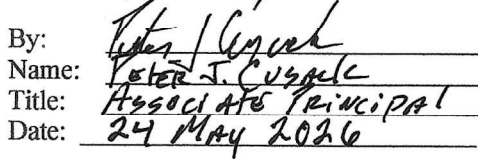 By: Peter J Cusack
Name: PETER J. CUSACK
Title: ASSOCIATE PRINCIPAL
Date: 24 MAY 2026